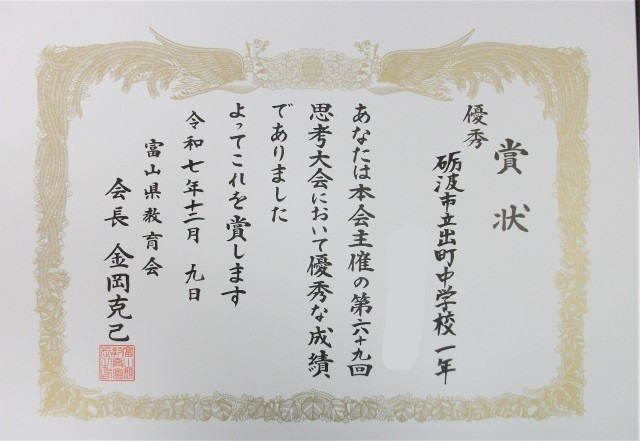 賞状
優秀
砺波市立出町中学校一年
あなたは本会主催の第六十九回
思考大会において優秀な成績
でありました
よってこれを賞します
令和七年十二月九日
富山県教育会
会長 金岡克己